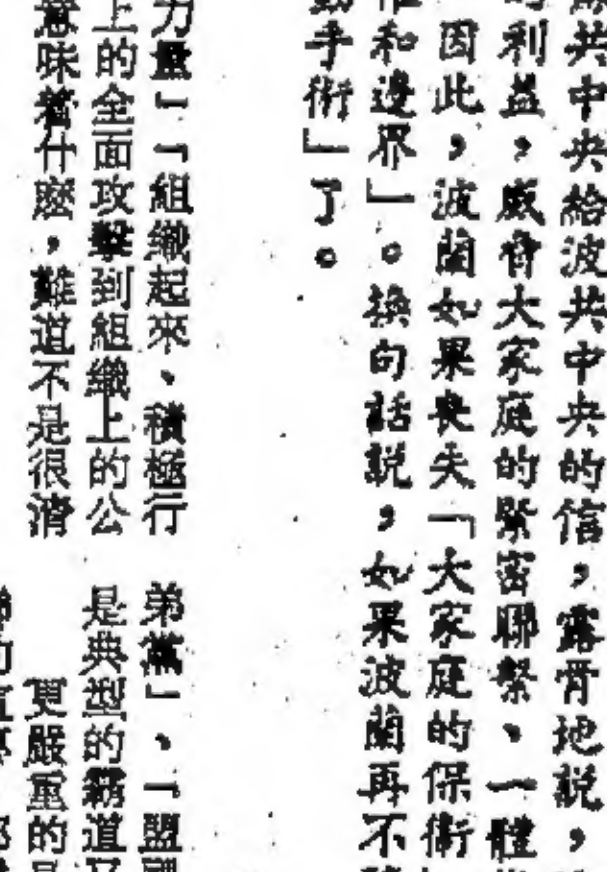 共中央給波共中央的信，露骨地説，
利益，威脅大家庭的緊密聯繫、一體
因此，波蘭如果喪失「大家庭的保衛
和邊界」。換句話説，如果波蘭再不
手術」了。
力量」「組織起來、積極行
上的全面攻擊到組織上的公
意味着什麽，難道不是很清
弟黨」、「盟
是典型的霸道又
更嚴重的是